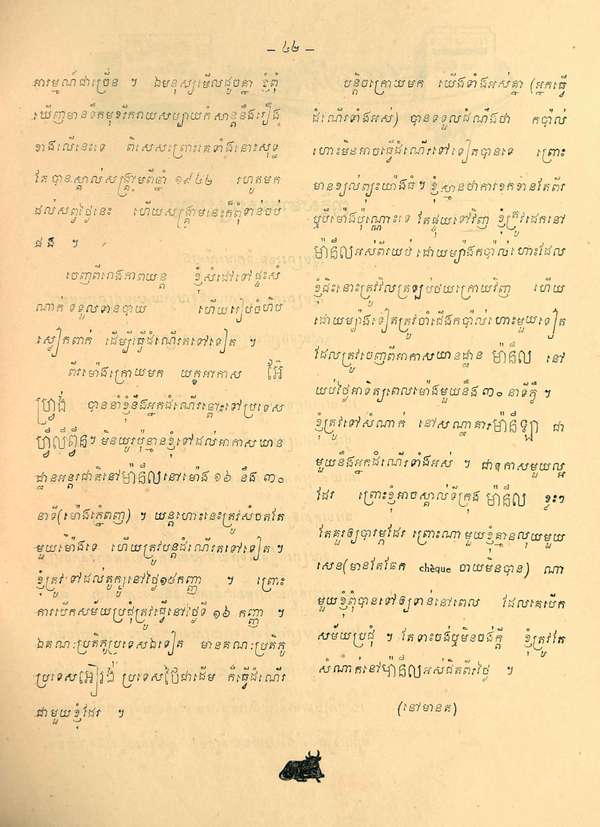 – ៤២ –
អារម្មណ៍ជាច្រើន ។ ឯមនុស្សមើលដូចគ្នា ខ្ញុំពុំ
ឃើញមានទឹកមុខរីករាយសប្បាយកំសាន្តនឹងរឿង
ខាងលើនេះទេ ពិសេសព្រោះគេទាំងនោះសុទ្ធ
តែបានស្គាល់សង្គ្រាមពីឆ្នាំ ១៩៤២ រហូតមក
ដល់សព្វថ្ងៃនេះ ហើយសង្គ្រាមនេះក៏ពុំទាន់ចប់
ផង ។
ចេញពីរោងភាពយន្ត ខ្ញុំសំដៅទៅផ្ទះសំ
ណាក់ ទទួលទានបាយ ហើយរៀបចំហិប
ស្លៀកពាក់ ដើម្បីធ្វើដំណើរតទៅទៀត ។
ពីរម៉ោងក្រោយមក យន្តអាកាស អ៊ែ
ហ្វ្រង់ បាននាំខ្ញុំនឹងអ្នកដំណើរឆ្ពោះទៅប្រទេស
ហ្វីលីព្ពីន។ មិនយូរប៉ុន្មានខ្ញុំទៅដល់អាកាសយាន
ដ្ឋានអន្តរជាតិនៅម៉ានីលនៅម៉ោង ១៦ នឹង ៣០
នាទី(ម៉ោងភ្នំពេញ) ។ យន្តហោះនេះត្រូវសំចតតែ
មួយម៉ោងទេ ហើយត្រូវបន្តដំណើរតទៅទៀត ។
ខ្ញុំត្រូវទៅដល់តូក្យូនៅថ្ងៃ១៥កញ្ញា ។ ព្រោះ
ការបើកសម័យប្រជុំត្រូវធ្វើនៅថ្ងៃទី ១៦ កញ្ញា ។
ឯគណៈប្រតិភូប្រទេសឯទៀត មានគណៈប្រតិភូ
ប្រទេសអៀរ៉ង់ ប្រទេសថៃជាដើម ក៏ធ្វើដំណើរ
ជាមួយខ្ញុំដែរ ។
បន្តិចក្រោយមក យើងទាំងអស់គ្នា (អ្នកធ្វើ
ដំណើរទាំងអស់) បានទទួលដំណឹងថា កប៉ាល់
ហោះមិនអាចធ្វើដំណើរទៅទៀតបានទេ ព្រោះ
មានខ្យល់ព្យុះយ៉ាងធំ។ ខ្ញុំស្មានថាការខកខានតែពីរ
ឬបីម៉ោងប៉ុណ្ណោះទេ តែផ្ទុយទៅវិញ ខ្ញុំត្រូវដេកនៅ
ម៉ានីលអស់ពីរយប់ ដោយម្យ៉ាងកប៉ាល់ហោះដែល
ខ្ញុំជិះនោះត្រូវវិលត្រឡប់ថយក្រោយវិញ ហើយ
ដោយម្យ៉ាងទៀតត្រូវចាំជើងកប៉ាល់ហោះមួយទៀត
ដែលត្រូវចេញពីអាកាសយានដ្ឋាន ម៉ានីល នៅ
យប់ថ្ងៃអាទិត្យពេលម៉ោងមួយនឹង ៣០ នាទីភ្លឺ ។
ខ្ញុំត្រូវទៅសំណាក់ នៅសណ្ឋាគារម៉ានីឡា ជា
មួយនឹងអ្នកដំណើរទាំងអស់ ។ ជាឱកាសមួយល្អ
ដែរ ព្រោះខ្ញុំអាចស្គាល់ទីក្រុង ម៉ានីល ខ្លះៗ
តែគួរឲ្យបារម្ភដែរ ព្រោះណាមួយខ្ញុំគ្មានលុយមួយ
សេន(មានតែឆែក chèque ចាយមិនបាន) ណា
មួយខ្ញុំពុំបានទៅឲ្យទាន់នៅពេល ដែលគេបើក
សម័យប្រជុំ ។ តែទោះចង់ឬមិនចង់ក្តី ខ្ញុំត្រូវតែ
សំណាក់នៅម៉ានីលអស់ជិតពីរថ្ងៃ ។
(នៅមានត)